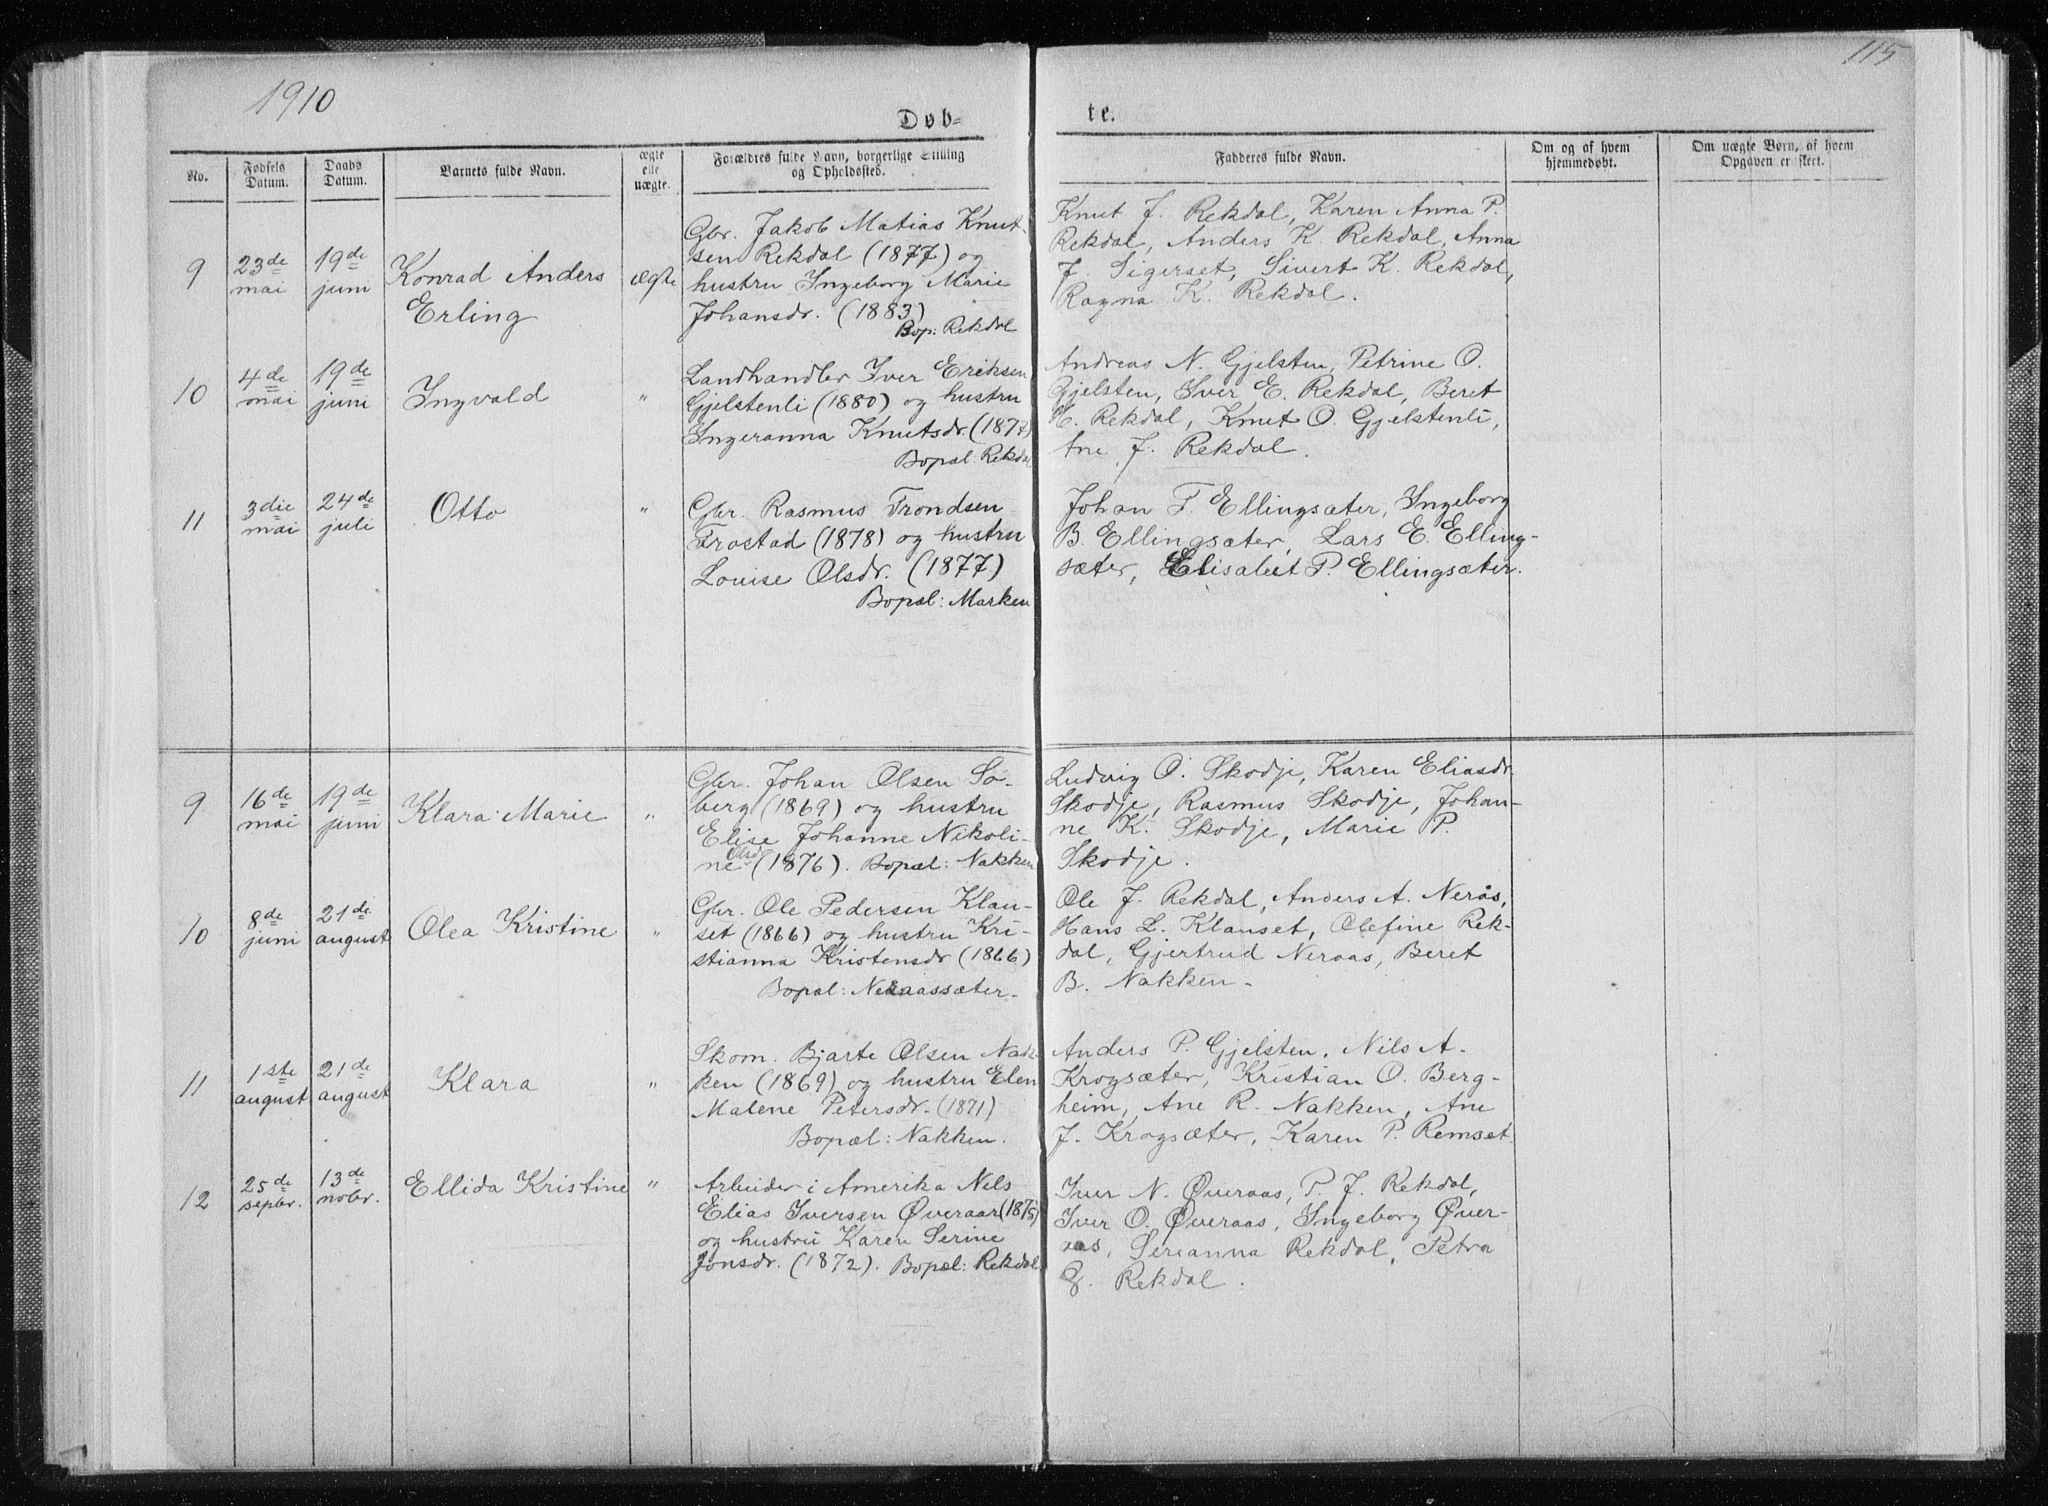 1910
115
Døb-
te.
No.
Fødsels Datum.
Daabs Datum.
Barnets fulde Navn.
ægte elle uægte.
Forældres fulde Navn, borgerlige Stilling og Opholdssted.
Fadderes fulde Navn.
Om og af hvem hjemmedøbt.
Om uægte Børn, af hvem Opgaven er skeet.
9
23de mai
19de juni
Konrad Anders
Erling
ægte
Gbr. Jakob Matias Knut-
sen Rekdal (1877) og
hustru Ingeborg Marie
Johansdr. (1883)
Bop: Rekdal
Knut J. Rekdal, Karen Anna P.
Rekdal, Anders K. Rekdal, Anna
J. Sigerset, Sivert K. Rekdal,
Ragna K. Rekdal.
10
4de mai
19de juni
Ingvald
"
Landhandler Iver Eriksen
Gjelstenli (1880) og hustru
Ingeranna Knutsdr. (1877)
Bopæl Rekdal
Andreas N. Gjelsten, Petrine O.
Gjelsten, Iver E. Rekdal, Beret
K. Rekdal, Knut O. Gjelstenli,
Ane J. Rekdal.
11
3die mai
24de juli
Otto
"
Gbr. Rasmus Trondsen
Frostad (1878) og hustru
Louise Olsdr. (1877)
Bopæl: Marken
Johan T. Ellingsæter, Ingeborg
B. Ellingsæter, Lars E. Elling-
sæter, Elisabet P. Ellingsæter.
9
16de mai
19de juni
Klara Marie
"
Gbr. Johan Olsen Sø-
berg (1869) og hustru
Elise Johanne Nikoli-
ne Olsdr (1876). Bopæl: Nakken
Ludvig O. Skodje, Karen Eliasdr
Skodje, Rasmus Skodje, Johan-
ne K. Skodje, Marie P.
Skodje.
10
8de juni
21de august
Olea Kristine
"
Gbr. Ole Pedersen Klau-
set (1866) og hustru Kri-
stianna Kristensdr (1866)
Bopæl: Neraassæter.
Ole J. Rekdal, Anders A. Nerås,
Hans L. Klauset, Olefine Rek-
dal, Gjertrud Neraas, Beret
B. Nakken.
11
1ste august
21de august
Klara
"
Skom. Bjarte Olsen Nak-
ken (1869) og hustru Elen
Malene Petersdr. (1871)
Bopæl: Nakken.
Anders P. Gjelsten, Nils A.
Krogsæter, Kristian O. Berg-
heim, Ane R. Nakken, Ane
J. Krogsæter, Karen P. Remset.
12
25de sepbr.
13de nobr.
Ellida Kristine
"
Arbeider i Amerika Nils
Elias Iversen Øveraas (1875)
og hustru Karen Serine
Jonsdr. (1872). Bopæl: Rekdal
Iver N. Øveraas, P. J. Rekdal,
Iver O. Øveraas, Ingeborg Øver-
aas, Serianna Rekdal, Petra
Rekdal.